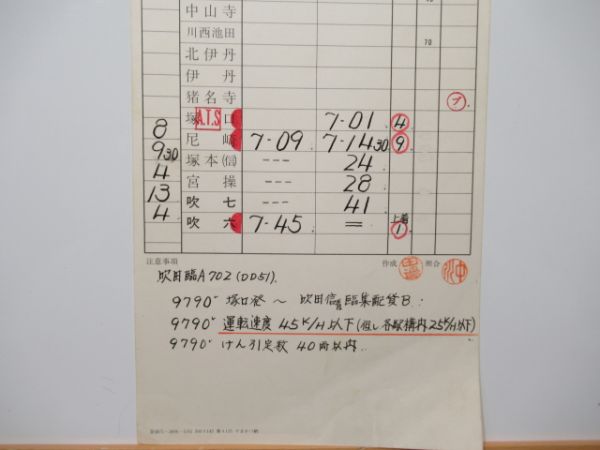 中山寺
川西池田
70
北伊丹
伊丹
猪名寺
塚口 A.T.S 7-01 4
8
尼崎 7-09 7-14 30 9
9 30
塚本(信) --- 24
4
宮操 --- 28
13
吹七 --- 41
4
吹六 7-45 = 1
注意事項 作成 照合
吹田臨A702(DD51).
9790レ 塚口発~吹田信臨集配貨B:
9790レ 運転速度 45K/H以下(但し各駅構内25K/H以下)
9790レ けん引定数 40両以内.